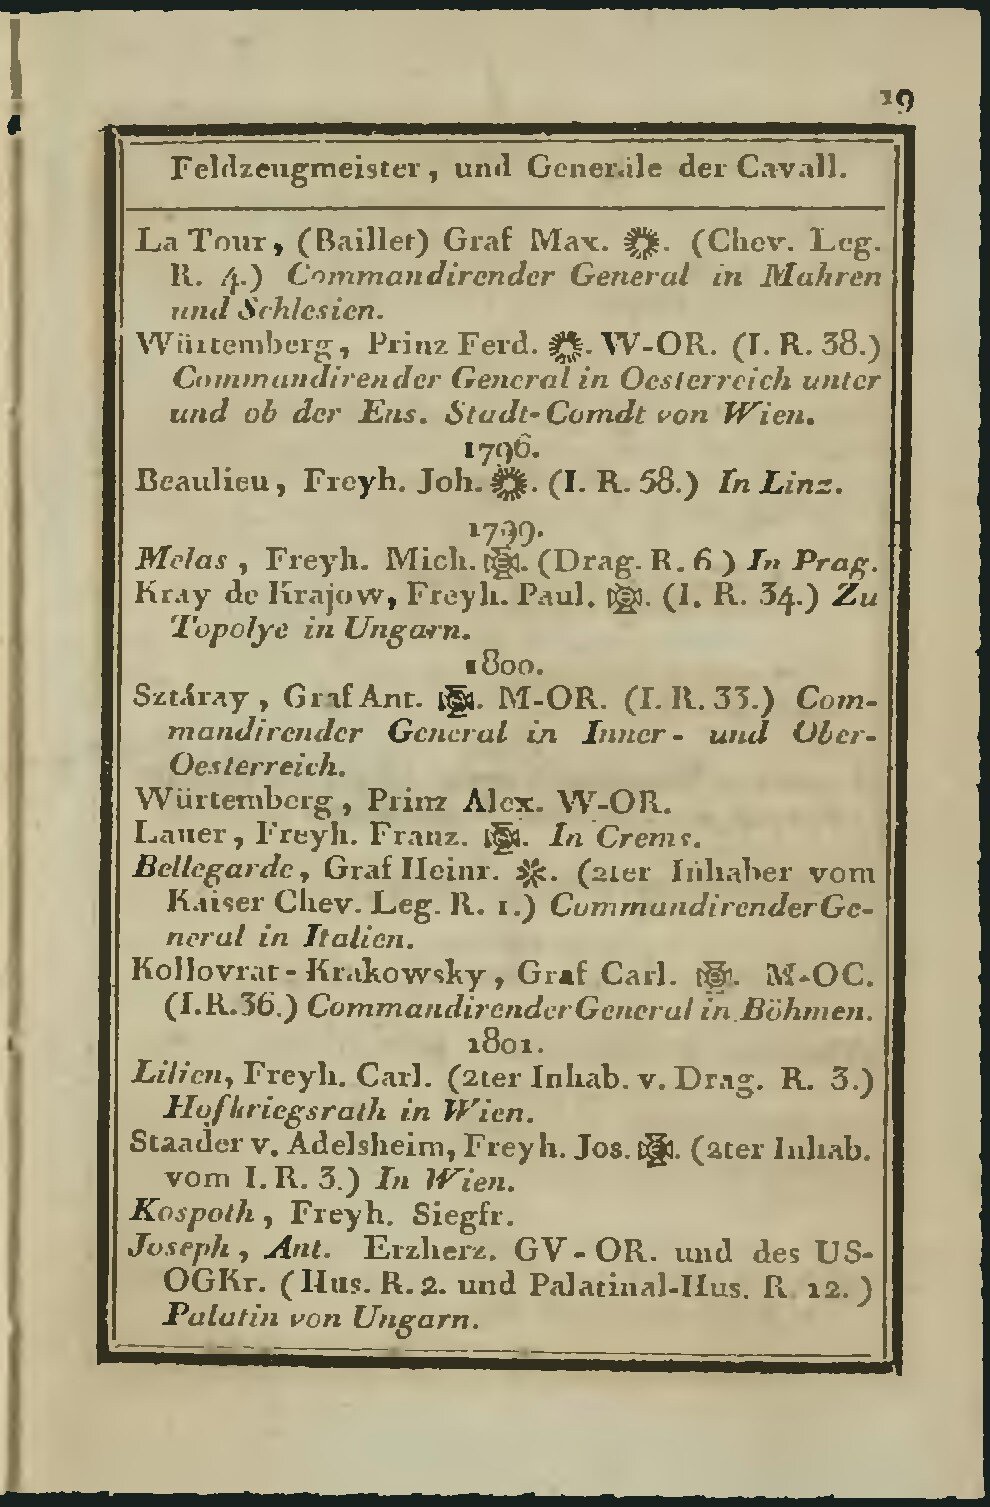 19
Feldzeugmeister, und Generäle der Cavall.
La Tour, (Baillet) Graf Max. . (Chev. Leg.
R. 4.) Commandirender General in Mahren
und Schlesien.
Würtemberg, Prinz Ferd. . W-OR. (I. R. 38.)
Commandirender General in Oesterreich unter
und ob der Ens. Stadt-Comdt von Wien.
1796.
Beaulieu, Freyh. Joh. . (I. R. 58.) In Linz.
1799.
Melas, Freyh. Mich. . (Drag. R. 6) In Prag.
Kray de Krajow, Freyh. Paul. . (I. R. 34.) Zu
Topolye in Ungarn.
1800.
Sztáray, Graf Ant. . M-OR. (I. R. 33.) Com-
mandirender General in Inner- und Ober-
Oesterreich.
Würtemberg, Prinz Alex. W-OR.
Lauer, Freyh. Franz. . In Crems.
Bellegarde, Graf Heinr. . (2ter Inhaber vom
Kaiser Chev. Leg. R. 1.) Commandirender Ge-
neral in Italien.
Kollovrat-Krakowsky, Graf Carl. . M-OC.
(I. R. 36.) Commandirender General in Böhmen.
1801.
Lilien, Freyh. Carl. (2ter Inhab. v. Drag. R. 3.)
Hofkriegsrath in Wien.
Staader v. Adelsheim, Freyh. Jos. . (2ter Inhab.
vom I. R. 3.) In Wien.
Kospoth, Freyh. Siegfr.
Joseph, Ant. Erzherz. GV-OR. und des US-
OGKr. (Hus. R. 2. und Palatinal-Hus. R. 12.)
Palatin von Ungarn.